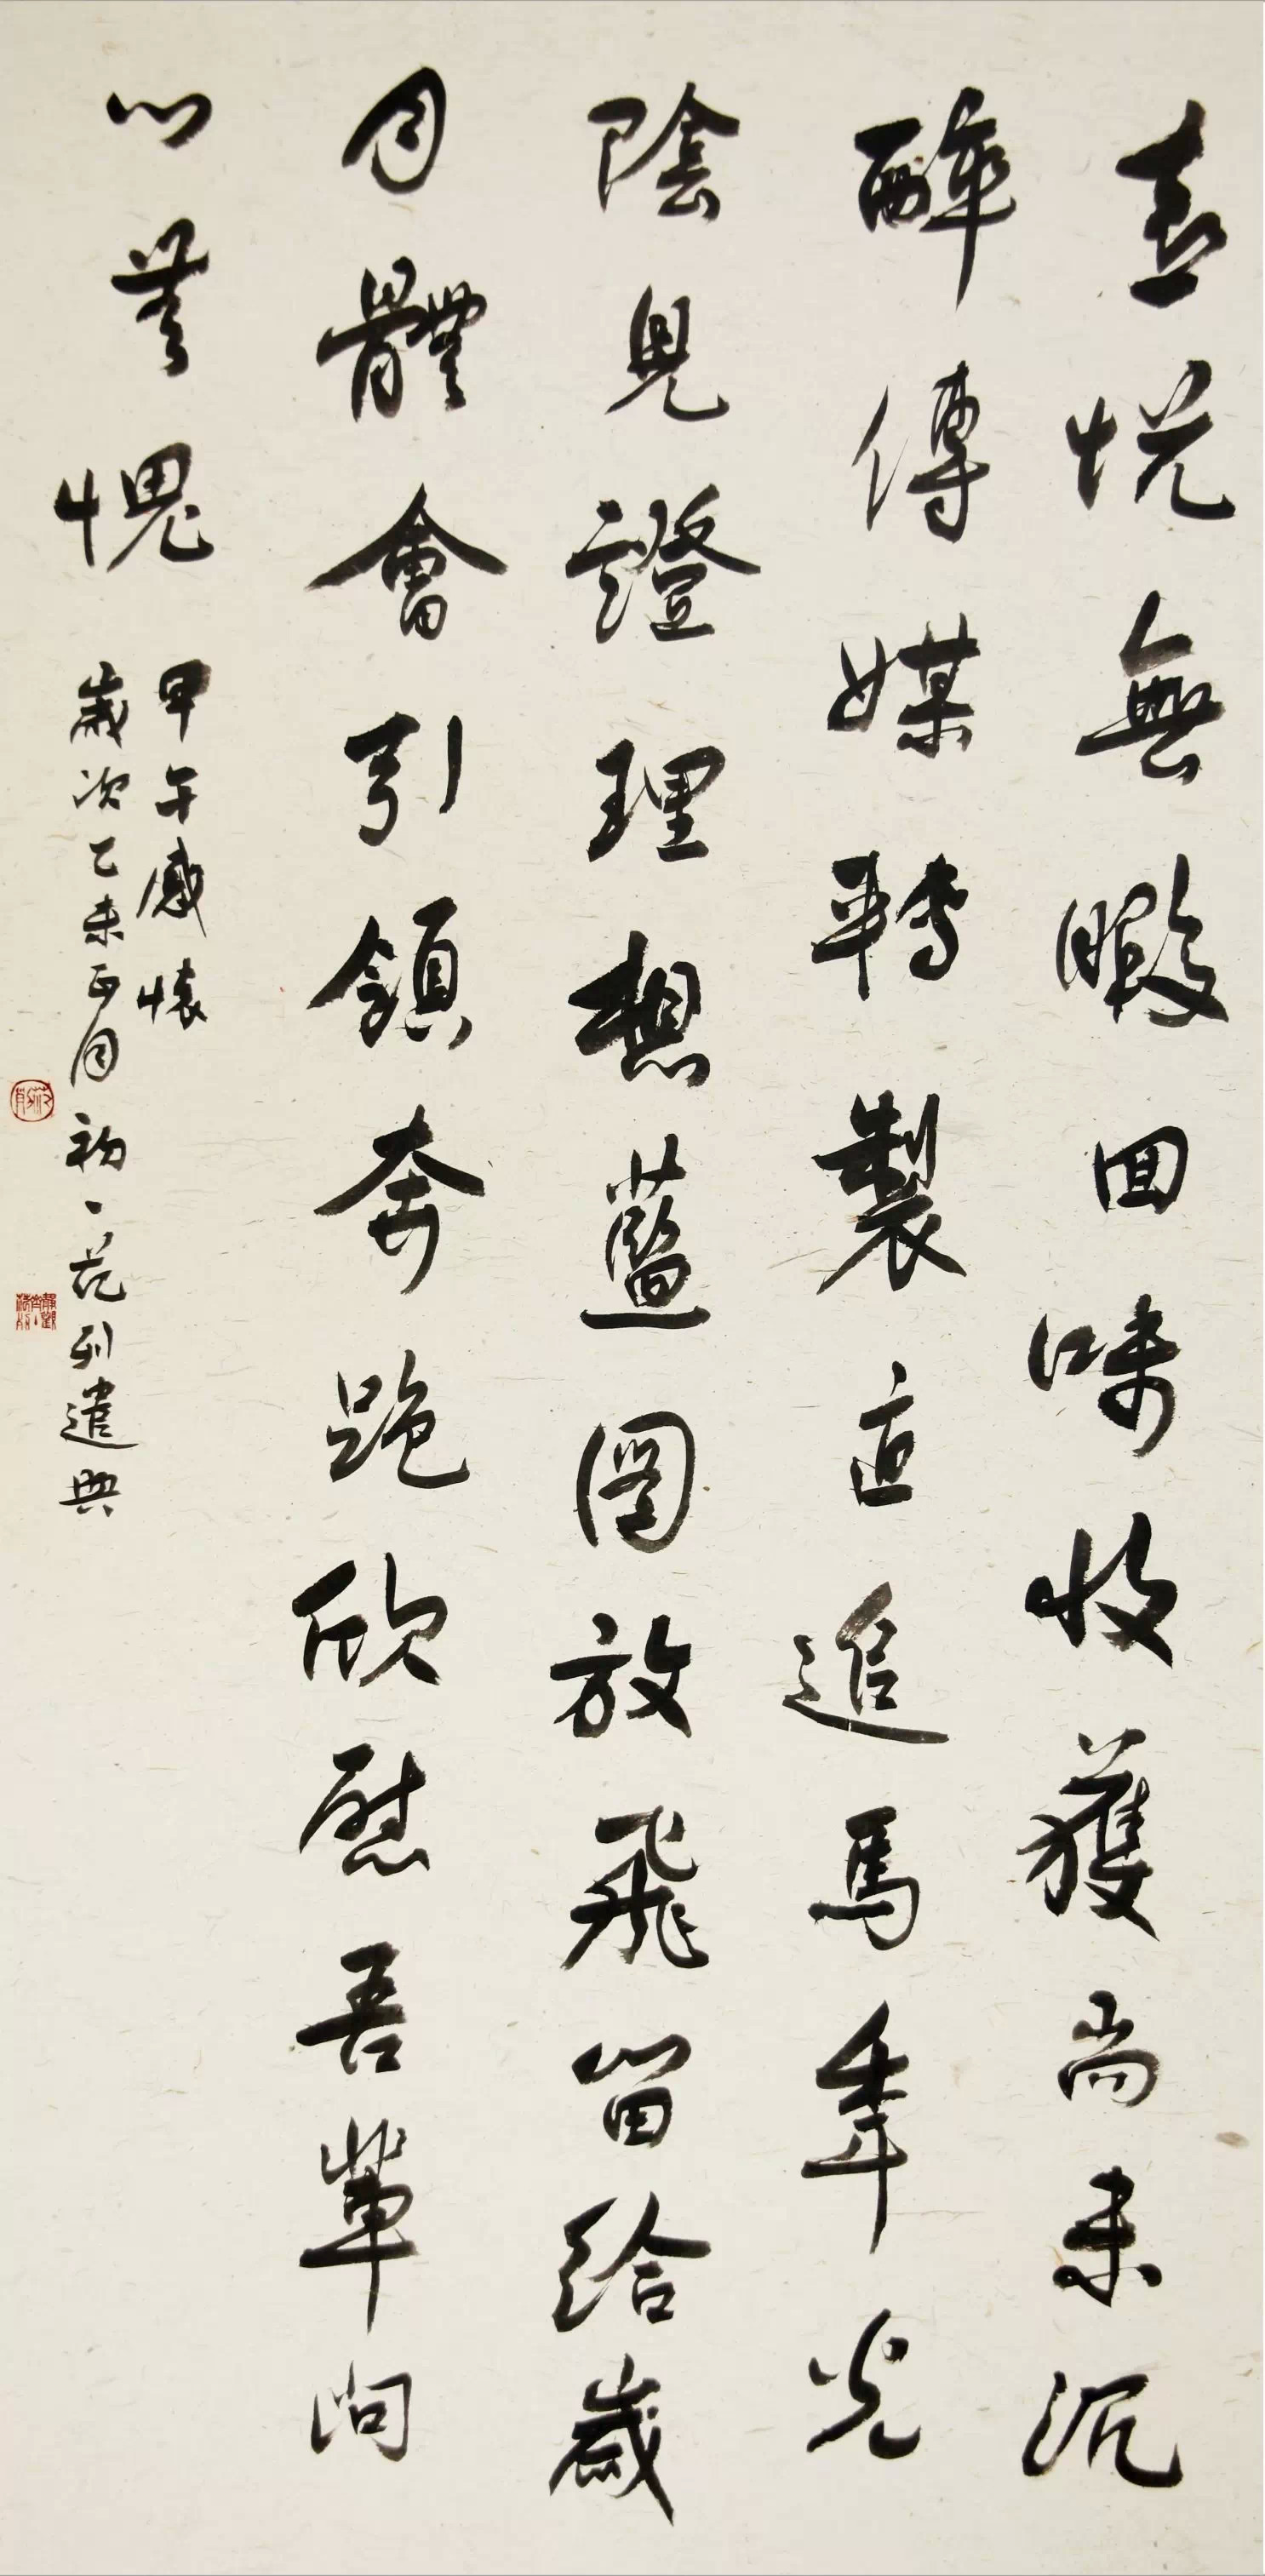 喜悅無暇回味收獲尚未沉
醉傳媒轉製直追馬年光
陰見證理想藍圖放飛留給歲
月體會引領奔跑欣慰吾輩問
心無愧
甲午感懷
歲次乙未正月初一范列遣興